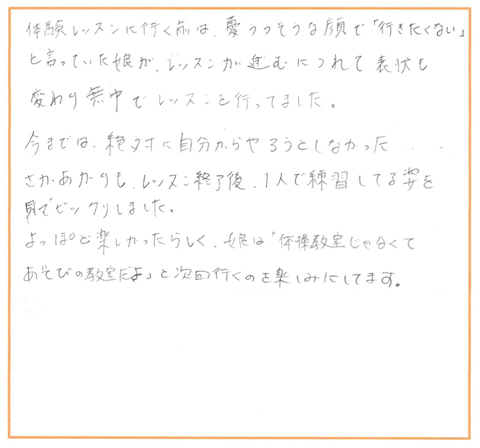 体験レッスンに行く前は、憂うつそうな顔で「行きたくない」
と言っていた娘が、レッスンが進むにつれて表状も
変わり無中でレッスンを行ってました。
今までは、絶対に自分からやろうとしなかった
さかあがりも、レッスン終了後、1人で練習してる姿を
見てビックリしました。
よっぽど楽しかったらしく、娘は「体操教室じゃなくて
あそびの教室だよ」と次回行くのを楽しみにしてます。